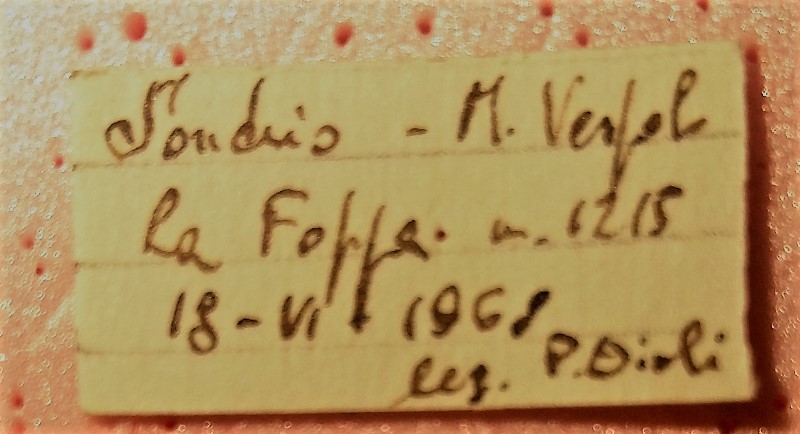 Sondrio - M. Verfel
La Foppa. m. 1215
18-VI 1968
leg. P. Dioli